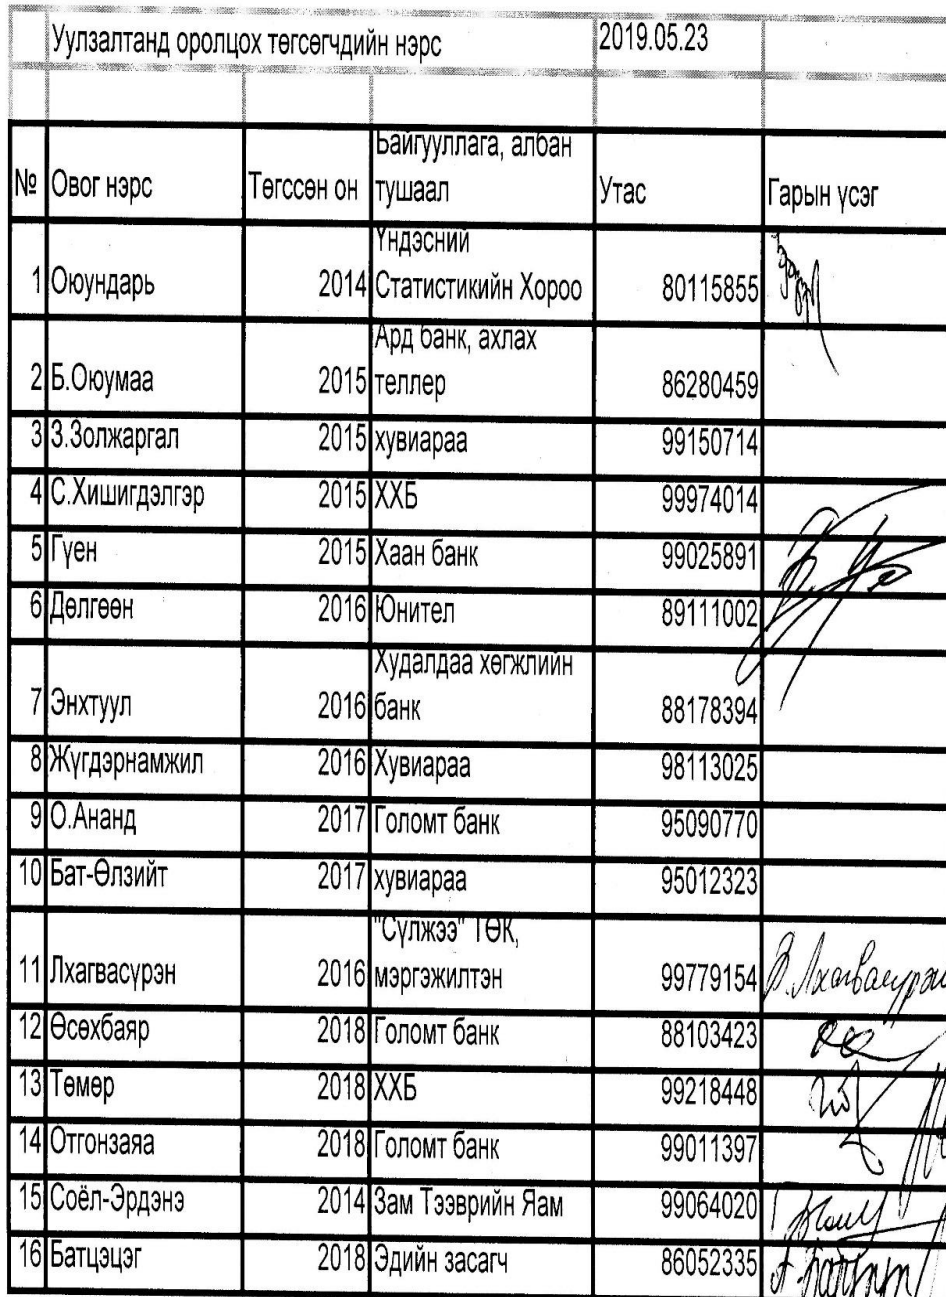 Уулзалтанд оролцох төгсөгчдийн нэрс 2019.05.23
№ Овог нэрс Төгссөн он Байгууллага, албан тушаал Утас Гарын үсэг
1 Оюундарь 2014 Үндэсний Статистикийн Хороо 80115855
2 Б.Оюумаа 2015 Ард банк, ахлах теллер 86280459
3 З.Золжаргал 2015 хувиараа 99150714
4 С.Хишигдэлгэр 2015 ХХБ 99974014
5 Гүен 2015 Хаан банк 99025891
6 Дөлгөөн 2016 Юнител 89111002
7 Энхтуул 2016 Худалдаа хөгжлийн банк 88178394
8 Жүгдэрнамжил 2016 Хувиараа 98113025
9 О.Ананд 2017 Голомт банк 95090770
10 Бат-Өлзийт 2017 хувиараа 95012323
11 Лхагвасүрэн 2016 "Сүлжээ" ТӨК, мэргэжилтэн 99779154
12 Өсөхбаяр 2018 Голомт банк 88103423
13 Төмөр 2018 ХХБ 99218448
14 Отгонзаяа 2018 Голомт банк 99011397
15 Соёл-Эрдэнэ 2014 Зам Тээврийн Яам 99064020
16 Батцэцэг 2018 Эдийн засагч 86052335